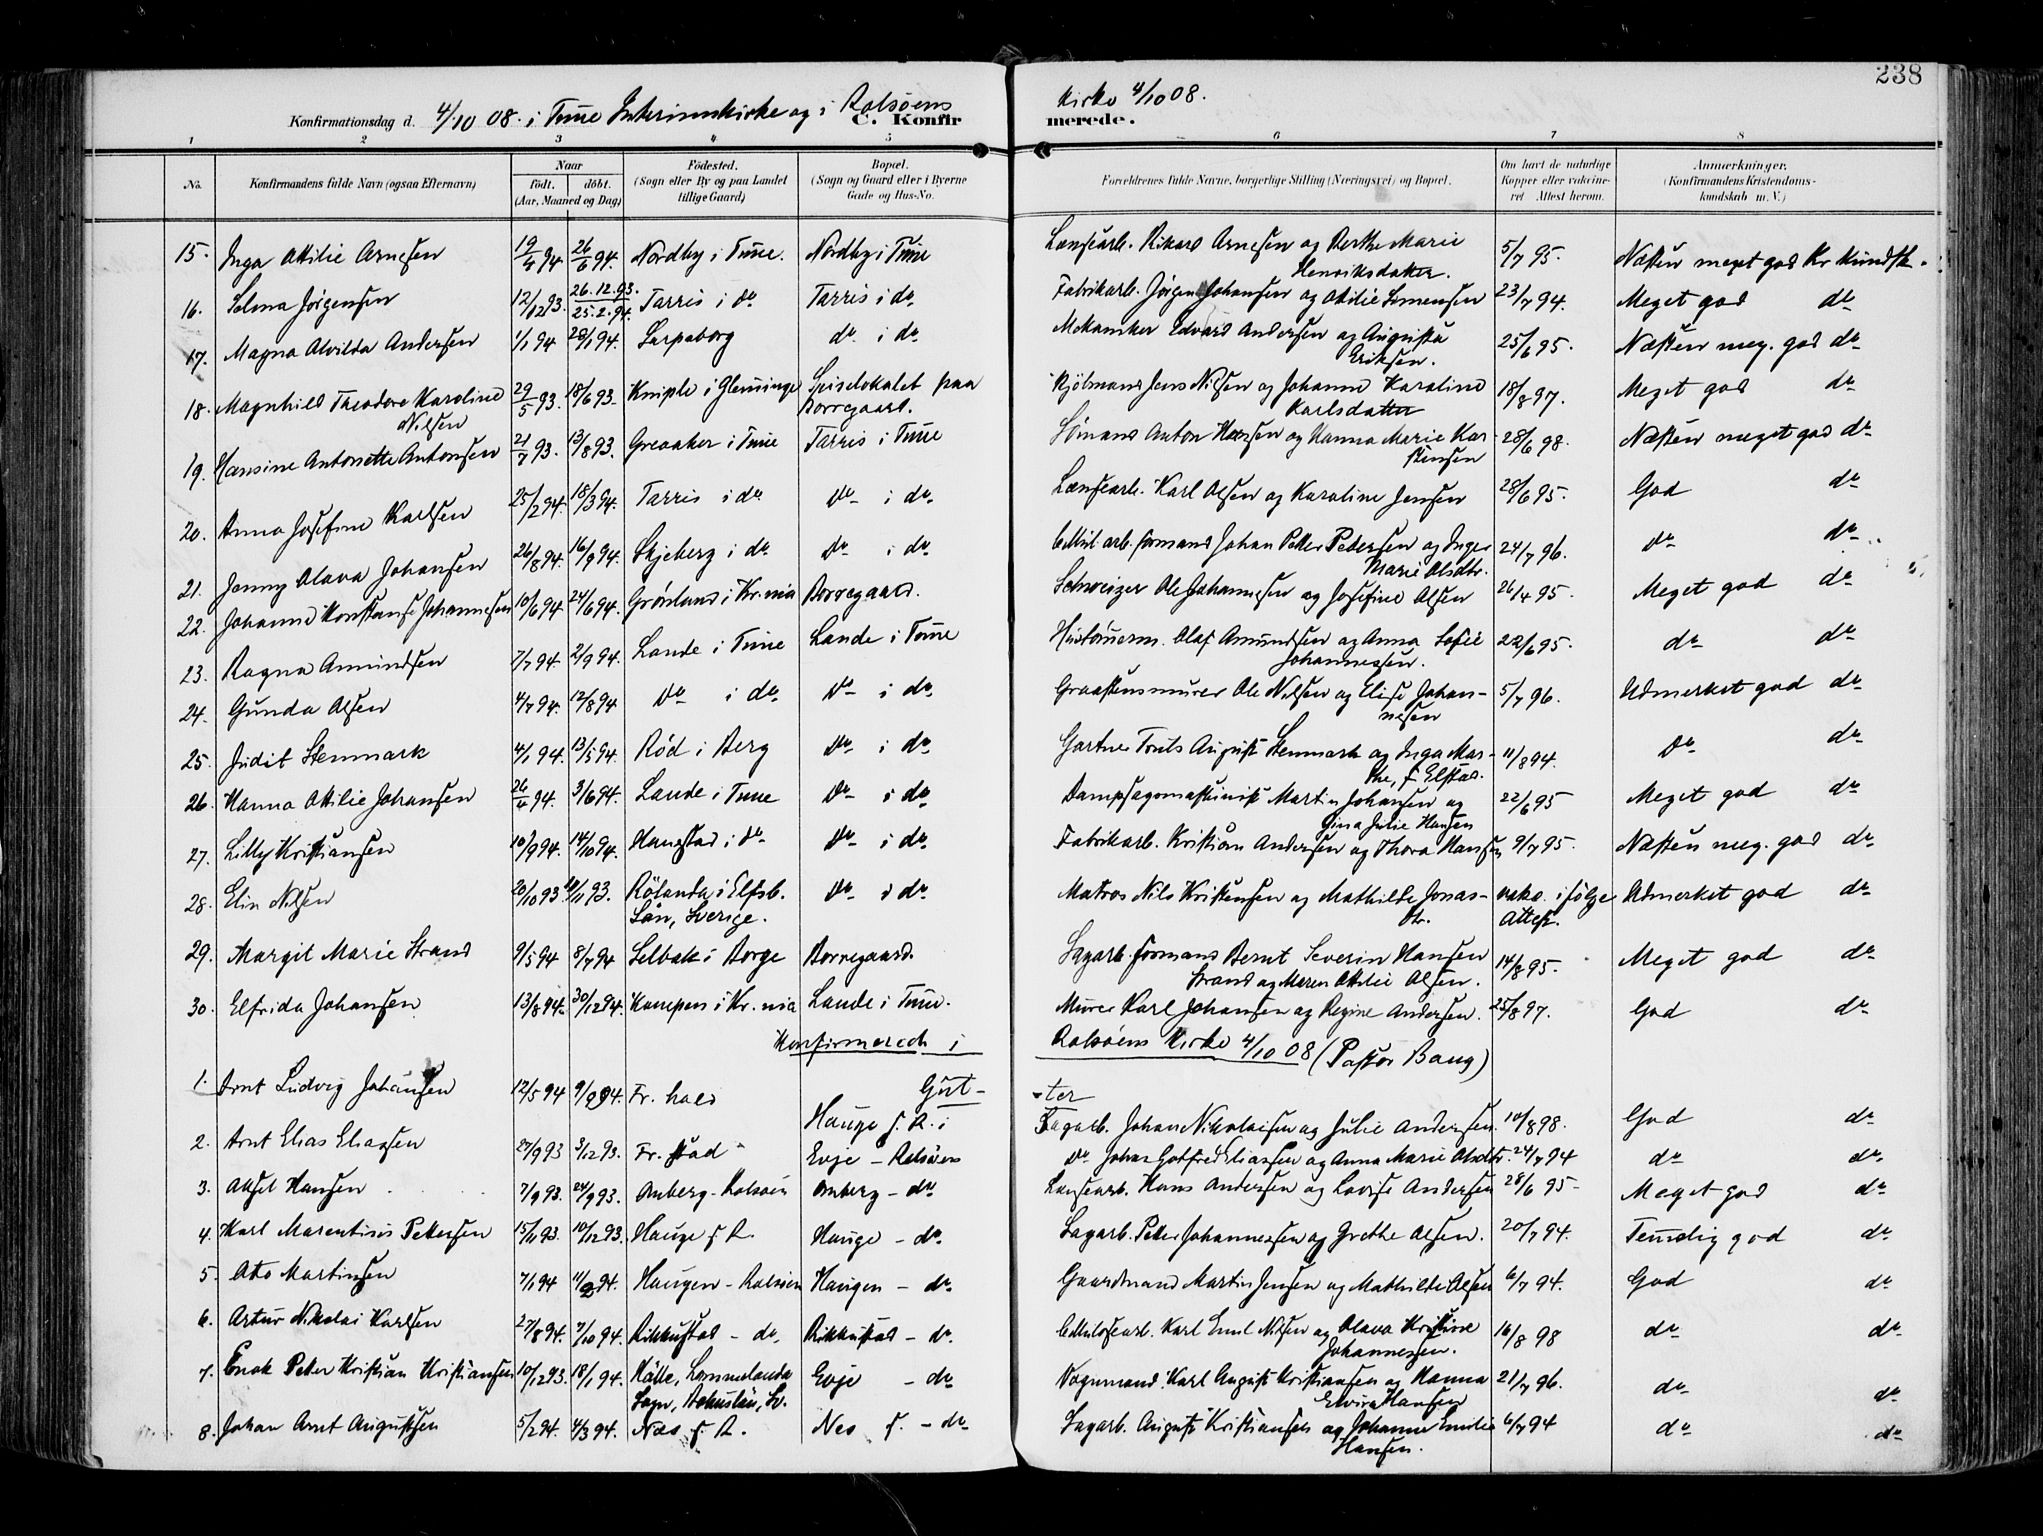 238
Konfirmationsdag d. 4/10 08. i Tune Interimskirke og i Rolsøens Kirke 4/10 08.
C. Konfirmerede.
1 2 3 4 5 6 7 8
No. Konfirmandens fulde Navn (ogsaa Efternavn) Naar født. døbt. (Aar, Maaned og Dag) Fødested. (Sogn eller By og paa Landet tillige Gaard) Bopæl. (Sogn og Gaard eller i Byerne Gade og Hus-No. Forældrenes fulde Navne, borgerlige Stilling (Næringsvei) og Bopæl. Om havt de naturlige Kopper eller vakcineret Attest herom. Anmærkninger. (Konfirmandens Kristendomskundskab m. V.)
15. Inga Otilie Arnesen 19/4 94 26/6 94. Nordby i Tune. Nordby i Tune Lænsearb. Rikard Arnesen og Berthe Marie Henriksdatter. 5/7 95. Næsten meget god Kr. kundsk.
16. Selma Jørgensen 12/12 93. 26.12.93. 25.2.94. Tarris i do Tarris i do Fabrikarb. Jørgen Johansen og Otilie Simensen 23/7 94. Meget god do
17. Magna Alvilda Andersen 1/1 94 28/1 94. Sarpsborg do i do Mekaniker Edvard Andersen og Augusta Eriksen. 25/6 95. Næsten meg. god do
18. Magnhild Theodora Karoline Nilsen 29/5 93. 18/6 93. Kniple i Glemminge Spiselokalet paa Borregaard. Kjølmand Jens Nilsen og Johanne Karoline Karlsdatter 18/8 97. Meget god do
19. Hansine Antonette Antonsen 21/7 93. 13/8 93. Greaaker i Tune Tarris i Tune Sømand Anton Hansen og Hanna Marie Karstensen 28/6 98. Næsten meget god do
20. Anna Josefine Karlsen 25/2 94. 18/3 94. Tarris i do do i do Lænsearb. Karl Olsen og Karoline Jensen 28/6 95. God do
21. Jenny Olava Johansen 26/8 94. 16/9 94. Skjeberg i do do i do Cellul. arb. formand Johan Petter Pedersen og Inger Marie Olsdtr. 24/7 96. do do
22. Johanne Konstanse Johannesen 10/6 94 24/6 94. Grønland i Kr.nia Borregaard. Schweizer Ole Johannesen og Josefine Olsen 26/4 95. Meget god do
23. Ragna Amundsen 7/7 94. 2/9 94. Lande i Tune Lande i Tune Hustømerm. Olaf Amundsen og Anna Sofie Johannessen. 22/6 95. do do
24. Gunda Olsen 4/7 94. 12/8 94 do i do do i do Graastensmurer Ole Nilsen og Elise Johannesen 5/7 96. Udmerket god do
25. Judit Stenmark 4/1 94. 13/5 94. Rød i Berg do i do Gartner Truls August Stenmark og Inga Marthe, f. Elstad. 11/8 94. do do
26. Hanna Otilie Johansen 26/4 94. 3/6 94. Lande i Tune do i do Dampsagsmaskinist Martin Johansen og Gina Julie Hansen 22/6 95 Meget god do
27. Lilly Kristiansen 10/9 94. 14/10 94. Hanestad i do do i do Fabrikarb. Kristian Andersen og Thora Hansen 9/7 95. Næsten meg. god do
28. Elin Nilsen 20/10 93 /11 93. Rölanda i Elfsb. Län, Sverige. do i do Matros Nils Kristensen og Mathilde Jonasdtr. vakc. i følge Attest. Udmerket god do
29. Margit Marie Strand 9/5 94 8/7 94 Selbak i Borge Borregaard. Sagarb. formand Bernt Severin Hansen Strand og Maren Otilie Olsen. 14/8 95. Meget god do
30. Elfrida Johansen 13/8 94. 30/12 94. Kampen i Kr.nia Lande i Tune. Murer Karl Johansen og Regine Andersen. 25/8 97. God do
Konfirmerede i Rolsøens Kirke 4/10 08 (Pastor Bang)
Gutter
1. Arnt Ludvig Johansen 12/5 94 9/9 94. Fr.hald Hauge f. R. i Sagarb. Johan Nikolaisen og Julie Andersen. 10/8 98. God do
2. Arnt Elias Eliassen 27/9 93 3/12 93. Fr.stad Evje - Rolsøen do Johan Gotfred Eliassen og Anna Marie Olsdtr. 24/7 94 do do
3. Aksel Hansen 7/9 93. 24/9 93. Omberg - Rolsøen Omberg - do Lænsearb. Hans Andersen og Lovise Andersen 28/6 95 Meget god do
4. Karl Marentius Pettersen 15/11 93. 10/12 93. Hauge f. R. Hauge - do Sagarb. Petter Johannessen og Grethe Olsen. 20/7 94. Temelig god do
5. Otto Martinsen 7/1 94 11/2 94. Haugen - Rolsøen Haugen - do Gaardmand Martin Jensen og Mathilde Olsen 6/7 94. God do
6. Artur Nikolai Karlsen 27/8 94. 7/10 94. Rikkustad - do Rikkustad - do Cellulosearb. Karl Emil Nilsen og Olava Kristine Johannessen. 16/8 98 do do
7. Enok Peter Kristian Kristiansen 10/12 93. 18/1 94. Hälle, Lommelanda Sogn, Bohuslän, Sv. Evje - do Vognmand Karl August Kristiansen og Hanna Elvira Hansen 21/7 96. do do
8. Johan Arnt Augustsen 5/2 94. 4/3 94. Næs f. R. Nes f. - do Sagarb. August Kristiansen og Johanne Emilie Hansen. 6/7 94 do do